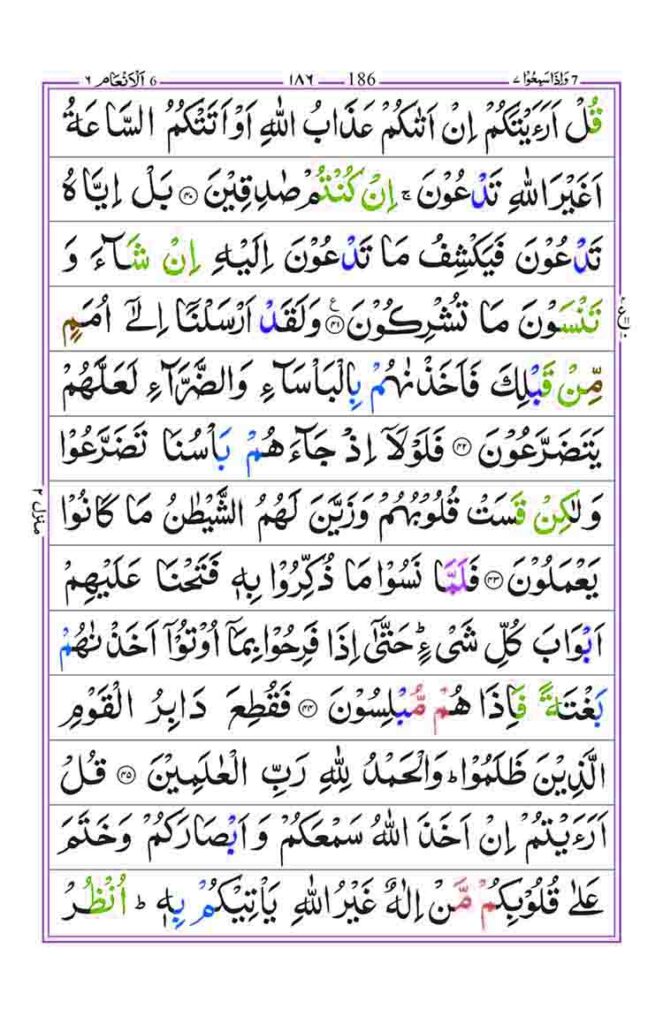 7 وَاِذَاسَمِعُوْا ٧ 186 ١٨٦ 6 اَلْاَنْعَام ٦
قُلْ اَرَءَيْتَكُمْ اِنْ اَتٰىكُمْ عَذَابُ اللّٰهِ اَوْ اَتَتْكُمُ السَّاعَةُ
اَغَيْرَ اللّٰهِ تَدْعُوْنَ ۚ اِنْ كُنْتُمْ صٰدِقِيْنَ ﴿۴۰﴾ بَلْ اِيَّاهُ
تَدْعُوْنَ فَيَكْشِفُ مَا تَدْعُوْنَ اِلَيْهِ اِنْ شَآءَ وَ
تَنْسَوْنَ مَا تُشْرِكُوْنَ ﴿۴۱﴾ ع وَلَقَدْ اَرْسَلْنَاۤ اِلٰٓى اُمَمٍ
مِّنْ قَبْلِكَ فَاَخَذْنٰهُمْ بِالْبَاْسَآءِ وَالضَّرَّآءِ لَعَلَّهُمْ
يَتَضَرَّعُوْنَ ﴿۴۲﴾ فَلَوْلَاۤ اِذْ جَآءَهُمْ بَاْسُنَا تَضَرَّعُوْا
وَلٰكِنْ قَسَتْ قُلُوْبُهُمْ وَزَيَّنَ لَهُمُ الشَّيْطٰنُ مَا كَانُوْا
منزل ٢
يَعْمَلُوْنَ ﴿۴۳﴾ فَلَمَّا نَسُوْا مَا ذُكِّرُوْا بِهٖ فَتَحْنَا عَلَيْهِمْ
اَبْوَابَ كُلِّ شَىْءٍ ؕ حَتّٰٓى اِذَا فَرِحُوْا بِمَاۤ اُوْتُوْۤا اَخَذْنٰهُمْ
بَغْتَةً فَاِذَا هُمْ مُّبْلِسُوْنَ ﴿۴۴﴾ فَقُطِعَ دَابِرُ الْقَوْمِ
الَّذِيْنَ ظَلَمُوْا ؕ وَالْحَمْدُ لِلّٰهِ رَبِّ الْعٰلَمِيْنَ ﴿۴۵﴾ قُلْ
اَرَءَيْتُمْ اِنْ اَخَذَ اللّٰهُ سَمْعَكُمْ وَاَبْصَارَكُمْ وَخَتَمَ
عَلٰى قُلُوْبِكُمْ مَّنْ اِلٰهٌ غَيْرُ اللّٰهِ يَاْتِيْكُمْ بِهٖ ؕ اُنْظُرْ